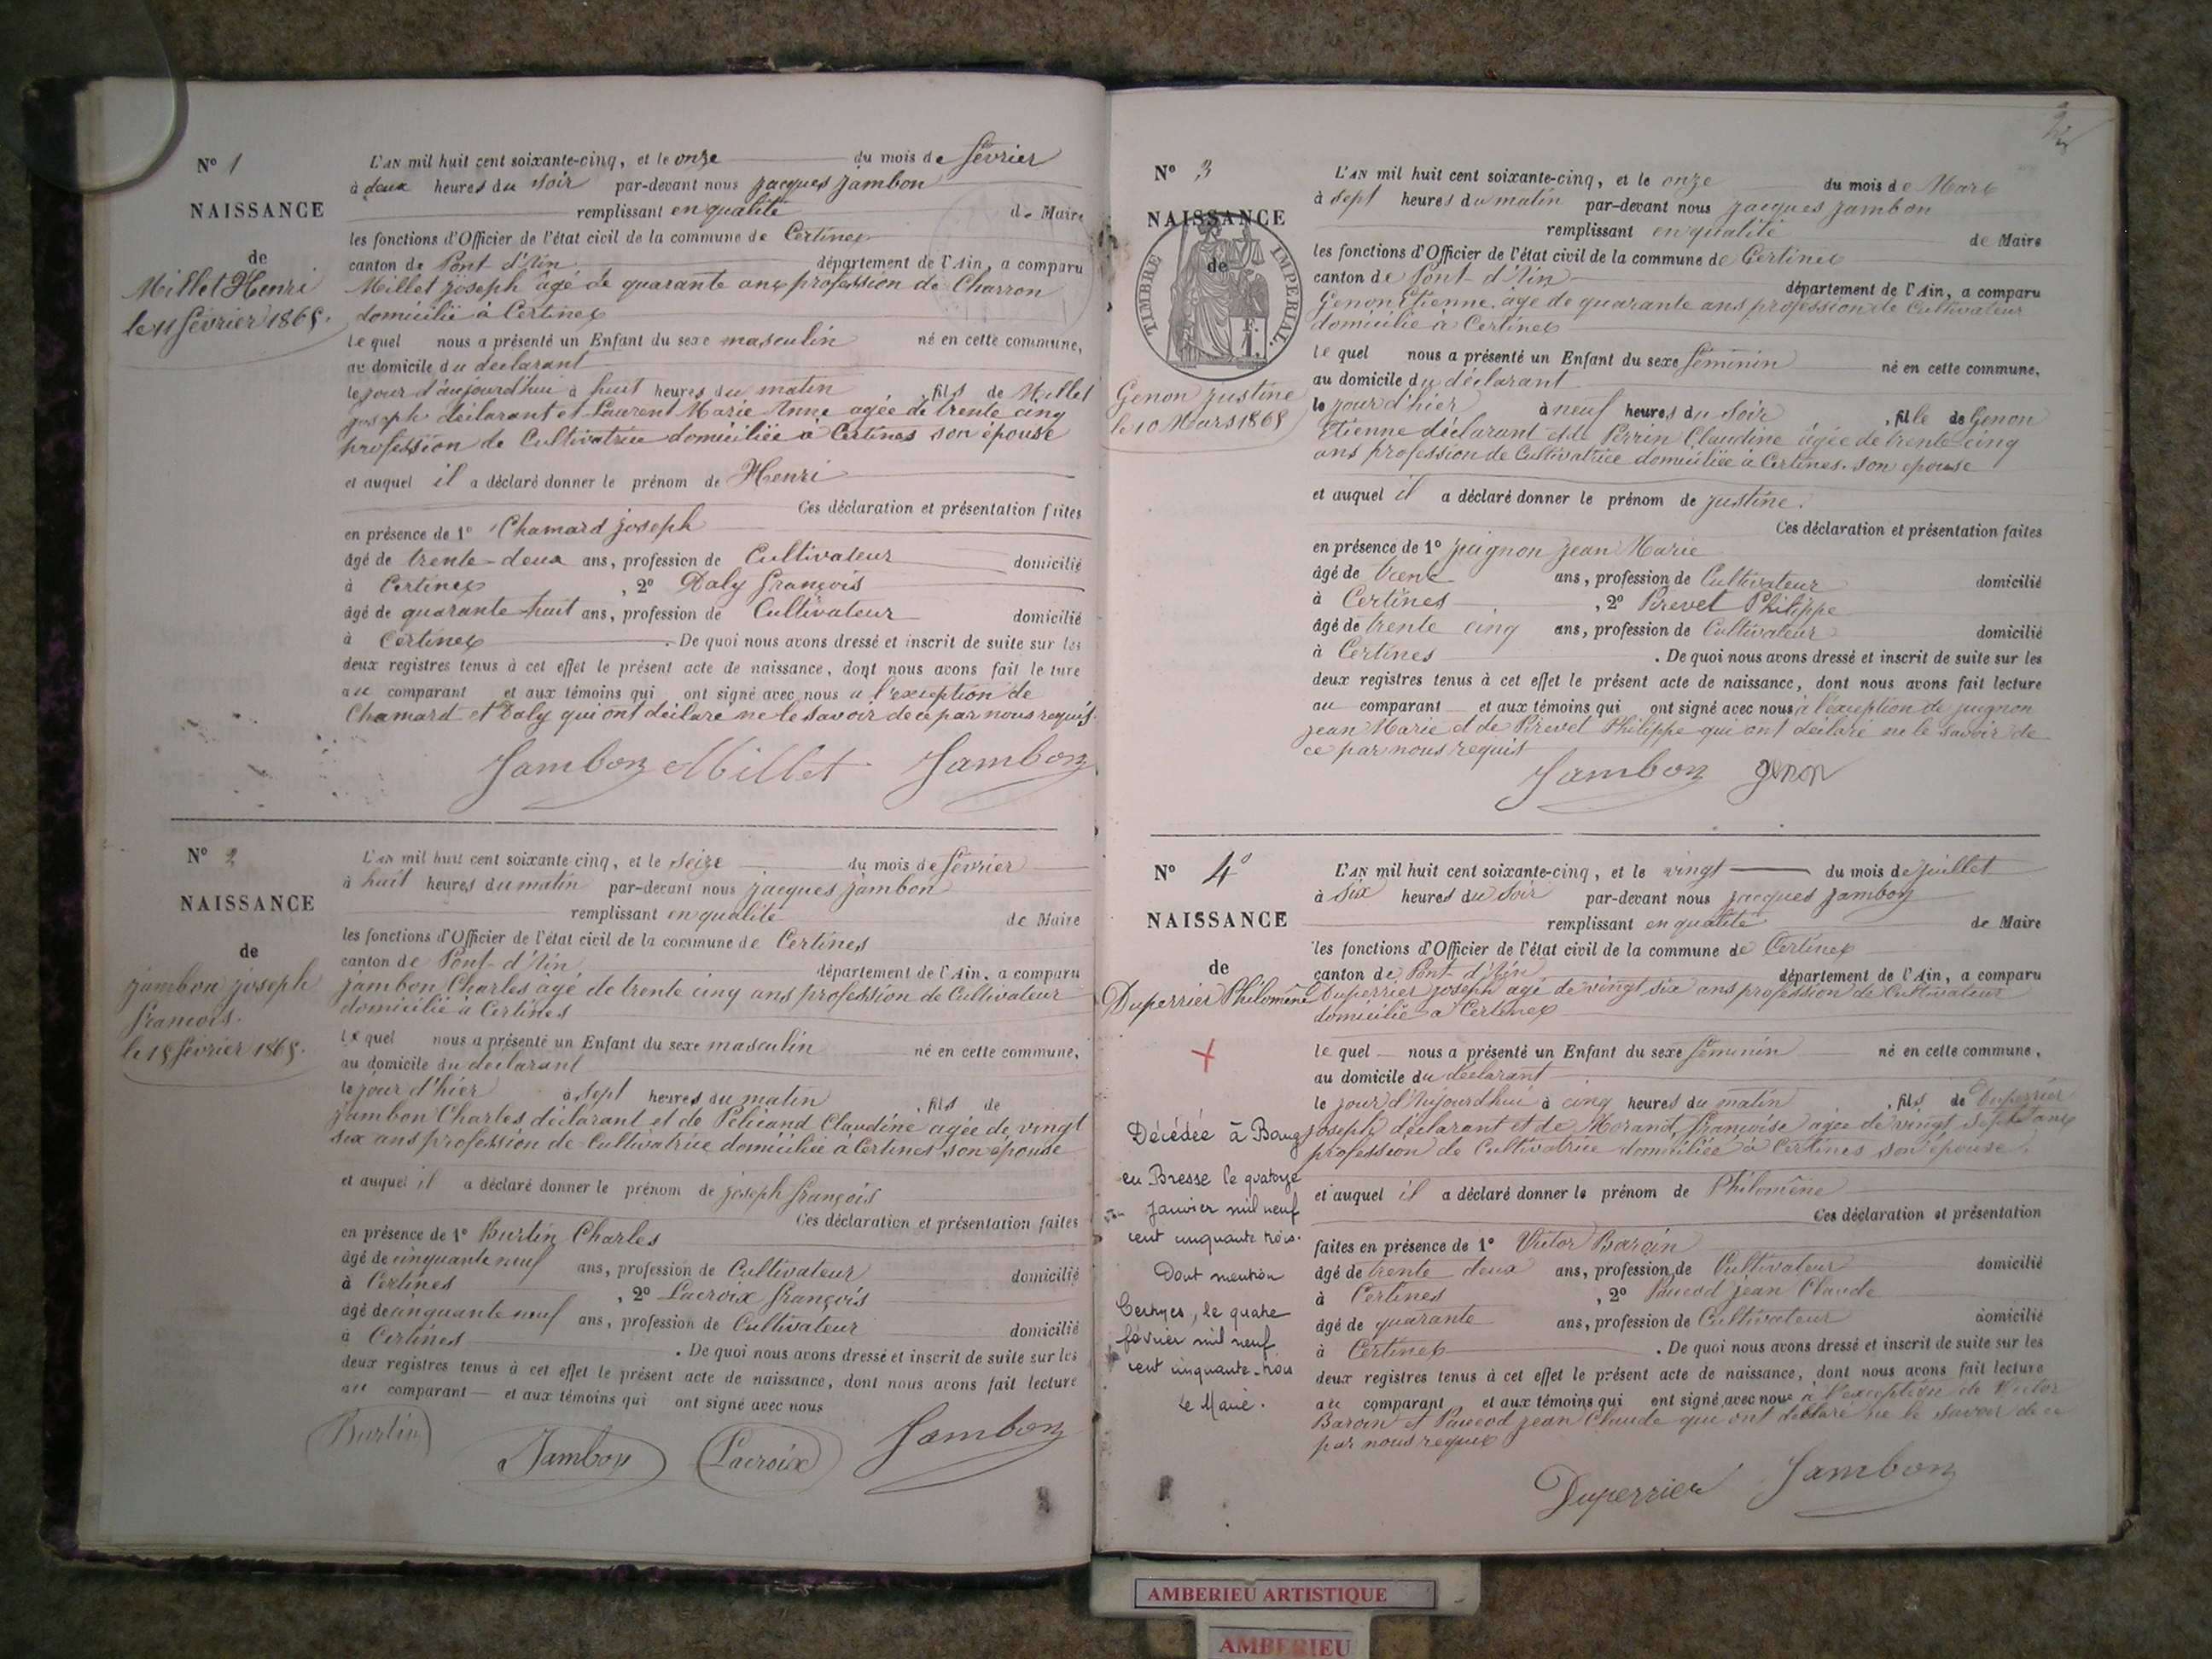 N° 1
NAISSANCE
de
Millet Henri
le 11 février 1865.
L'AN mil huit cent soixante-cinq, et le onze du mois de février
à deux heures du soir par-devant nous jacques jambon
remplissant en qualité de Maire
les fonctions d'Officier de l'état civil de la commune de Certines
canton de Pont-d'Ain département de l'Ain, a comparu
Millet joseph agé de quarante ans profession de Charron
domicilié à Certines
lequel nous a présenté un Enfant du sexe masculin né en cette commune,
au domicile du déclarant
le jour d'aujourd'hui à huit heures du matin , fils de Millet
joseph déclarant et Laurent Marie Anne agée de trente cinq
profession de Cultivatrice domiciliée à Certines son épouse
et auquel il a déclaré donner le prénom de Henri
Ces déclaration et présentation faites
en présence de 1° Chamard joseph
âgé de trente-deux ans, profession de Cultivateur domicilié
à Certines , 2° Daly françois
âgé de quarante huit ans, profession de Cultivateur domicilié
à Certines . De quoi nous avons dressé et inscrit de suite sur les
deux registres tenus à cet effet le présent acte de naissance, dont nous avons fait lecture
au comparant et aux témoins qui ont signé avec nous a l'exception de
Chamard et Daly qui ont déclaré ne le savoir de ce par nous requis.
Jambon Millet Jambon
N° 2
NAISSANCE
de
jambon joseph
francois.
le 15 février 1865.
L'AN mil huit cent soixante cinq, et le seize du mois de février
à huit heures du matin par-devant nous jacques jambon
remplissant en qualité de Maire
les fonctions d'Officier de l'état civil de la commune de Certines
canton de Pont-d'Ain département de l'Ain, a comparu
jambon Charles agé de trente cinq ans profession de Cultivateur
domicilié à Certines
lequel nous a présenté un Enfant du sexe masculin né en cette commune,
au domicile du déclarant
le jour d'hier à sept heures du matin , fils de
jambon Charles déclarant et de Pélicand Claudine agée de vingt
six ans profession de Cultivatrice domiciliée à Certines son épouse
et auquel il a déclaré donner le prénom de joseph françois
Ces déclaration et présentation faites
en présence de 1° Burlin Charles
âgé de cinquante neuf ans, profession de Cultivateur domicilié
à Certines , 2° Lacroix françois
âgé de cinquante neuf ans, profession de Cultivateur domicilié
à Certines . De quoi nous avons dressé et inscrit de suite sur les
deux registres tenus à cet effet le présent acte de naissance, dont nous avons fait lecture
au comparant et aux témoins qui ont signé avec nous
Burlin Jambon Lacroix Jambon
N° 3
NAISSANCE
de
TIMBRE IMPERIAL.
1 F.
Genon justine
le 10 Mars 1865
L'AN mil huit cent soixante-cinq, et le onze du mois de Mars
à sept heures du matin par-devant nous jacques jambon
remplissant en qualité de Maire
les fonctions d'Officier de l'état civil de la commune de Certines
canton de Pont-d'Ain département de l'Ain, a comparu
Genon Etienne agé de quarante ans profession de Cultivateur
domicilié à Certines
lequel nous a présenté un Enfant du sexe féminin né en cette commune,
au domicile du déclarant
le jour d'hier à neuf heures du soir , fille de Genon
Etienne déclarant et de Perrin Claudine agée de trente cinq
ans profession de Cultivatrice domiciliée à Certines. son epouse
et auquel il a déclaré donner le prénom de justine.
Ces déclaration et présentation faites
en présence de 1° juignon jean Marie
âgé de trente ans, profession de Cultivateur domicilié
à Certines , 2° Pirevet Philippe
âgé de trente cinq ans, profession de Cultivateur domicilié
à Certines . De quoi nous avons dressé et inscrit de suite sur les
deux registres tenus à cet effet le présent acte de naissance, dont nous avons fait lecture
au comparant et aux témoins qui ont signé avec nous à l'exception de juignon
jean Marie et de Pirevet Philippe qui ont déclaré ne le savoir de
ce par nous requis
Jambon genon
N° 4
NAISSANCE
de
Duperrier Philomène
Décédée à Bourg
en Bresse le quatorze
janvier mil neuf
cent cinquante trois.
Dont mention
Certines, le quatre
février mil neuf
cent cinquante-trois
Le Maire.
L'AN mil huit cent soixante-cinq, et le vingt du mois de juillet
à six heures du soir par-devant nous jacques jambon
remplissant en qualité de Maire
les fonctions d'Officier de l'état civil de la commune de Certines
canton de Pont-d'Ain département de l'Ain, a comparu
Duperrier joseph agé de vingt six ans profession de Cultivateur
domicilié à Certines
lequel nous a présenté un Enfant du sexe féminin né en cette commune,
au domicile du déclarant
le jour d'Aujourdhui à cinq heures du matin , fils de Duperrier
joseph déclarant et de Morand françoise agée de vingt sept ans
profession de Cultivatrice domiciliée à Certines son épouse.
et auquel il a déclaré donner le prénom de Philomène
Ces déclaration et présentation
faites en présence de 1° Victor Baroin
âgé de trente deux ans, profession de Cultivateur domicilié
à Certines , 2° jean Claude
âgé de quarante ans, profession de Cultivateur domicilié
à Certines . De quoi nous avons dressé et inscrit de suite sur les
deux registres tenus à cet effet le présent acte de naissance, dont nous avons fait lecture
au comparant et aux témoins qui ont signé avec nous à l'exception de Victor
Baroin et jean Claude qui ont déclaré ne le savoir de ce
par nous requis
Duperrier Jambon
AMBERIEU ARTISTIQUE
AMBERIEU